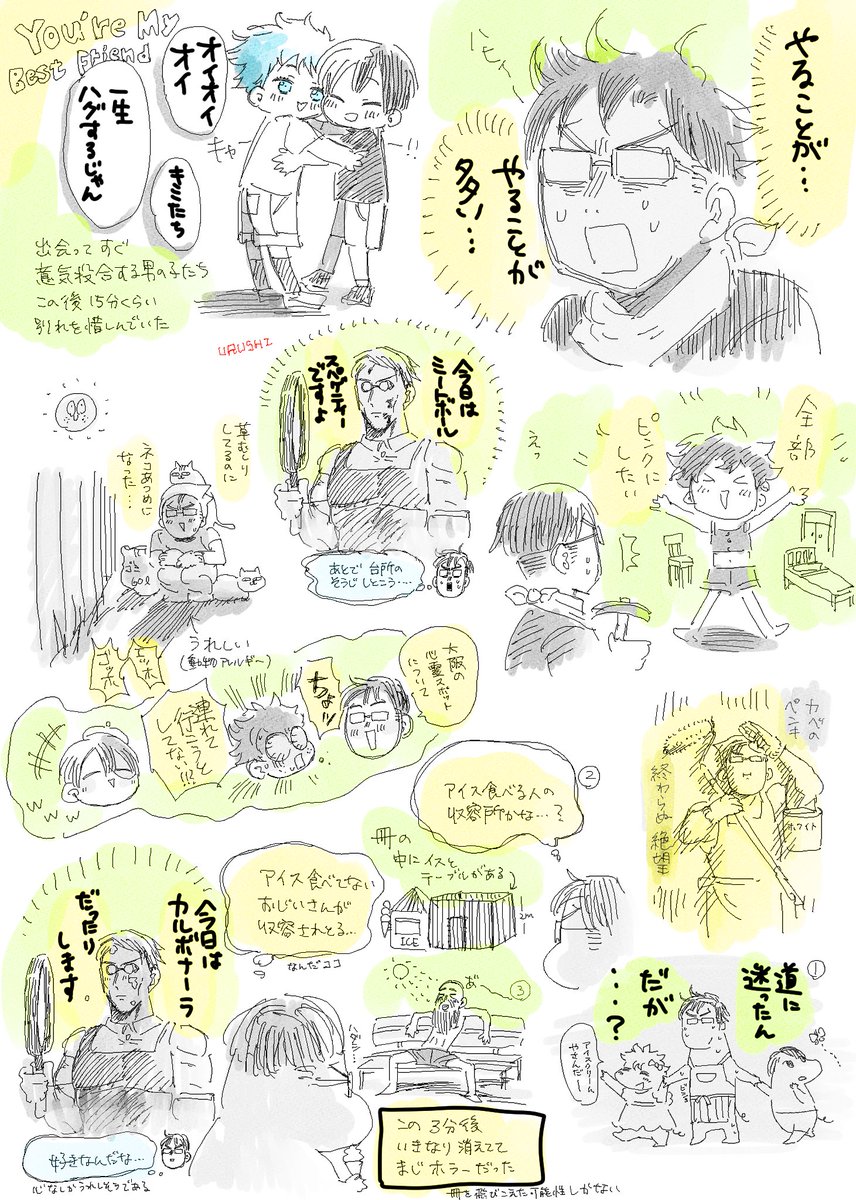 You're My
Best Friend
オイオイ
オイ
一生
ハグするじゃん
キミたち
キャー
!!
出会ってすぐ
意気投合する男の子たち
この後15分くらい
別れを惜しんでいた
やることが…
やることが
多い…
URUSHI
今日は
ミートボール
スパゲティー
ですよ
あとで台所の
そうじしとこう…
草むしり
してるのに
ネコあつめに
なった…
うれしい
(動物アレルギー)
全部
ピンクに
したい
えっ
大阪の
心霊スポット
について
ちょッ
連れて
行こうと
してない!!!
エッホ
ゴッホ
www
カベの
ペンキ
終わらぬ絶望
ホワイト
①
道に
迷ったん
だが
…?
アイスクリーム
やさんだー
②
アイス食べる人の
収容所かな…?
柵の
中にイスと
テーブルがある
2m
ICE
アイス食べてない
おじいさんが
収容されとる…
なんだココ
③
あ〜
この3分後
いきなり消えてて
まじホラーだった
柵を飛びこえた可能性しかない
今日は
カルボナーラ
だったり
します
好きなんだな…
心なしかうれしそうである